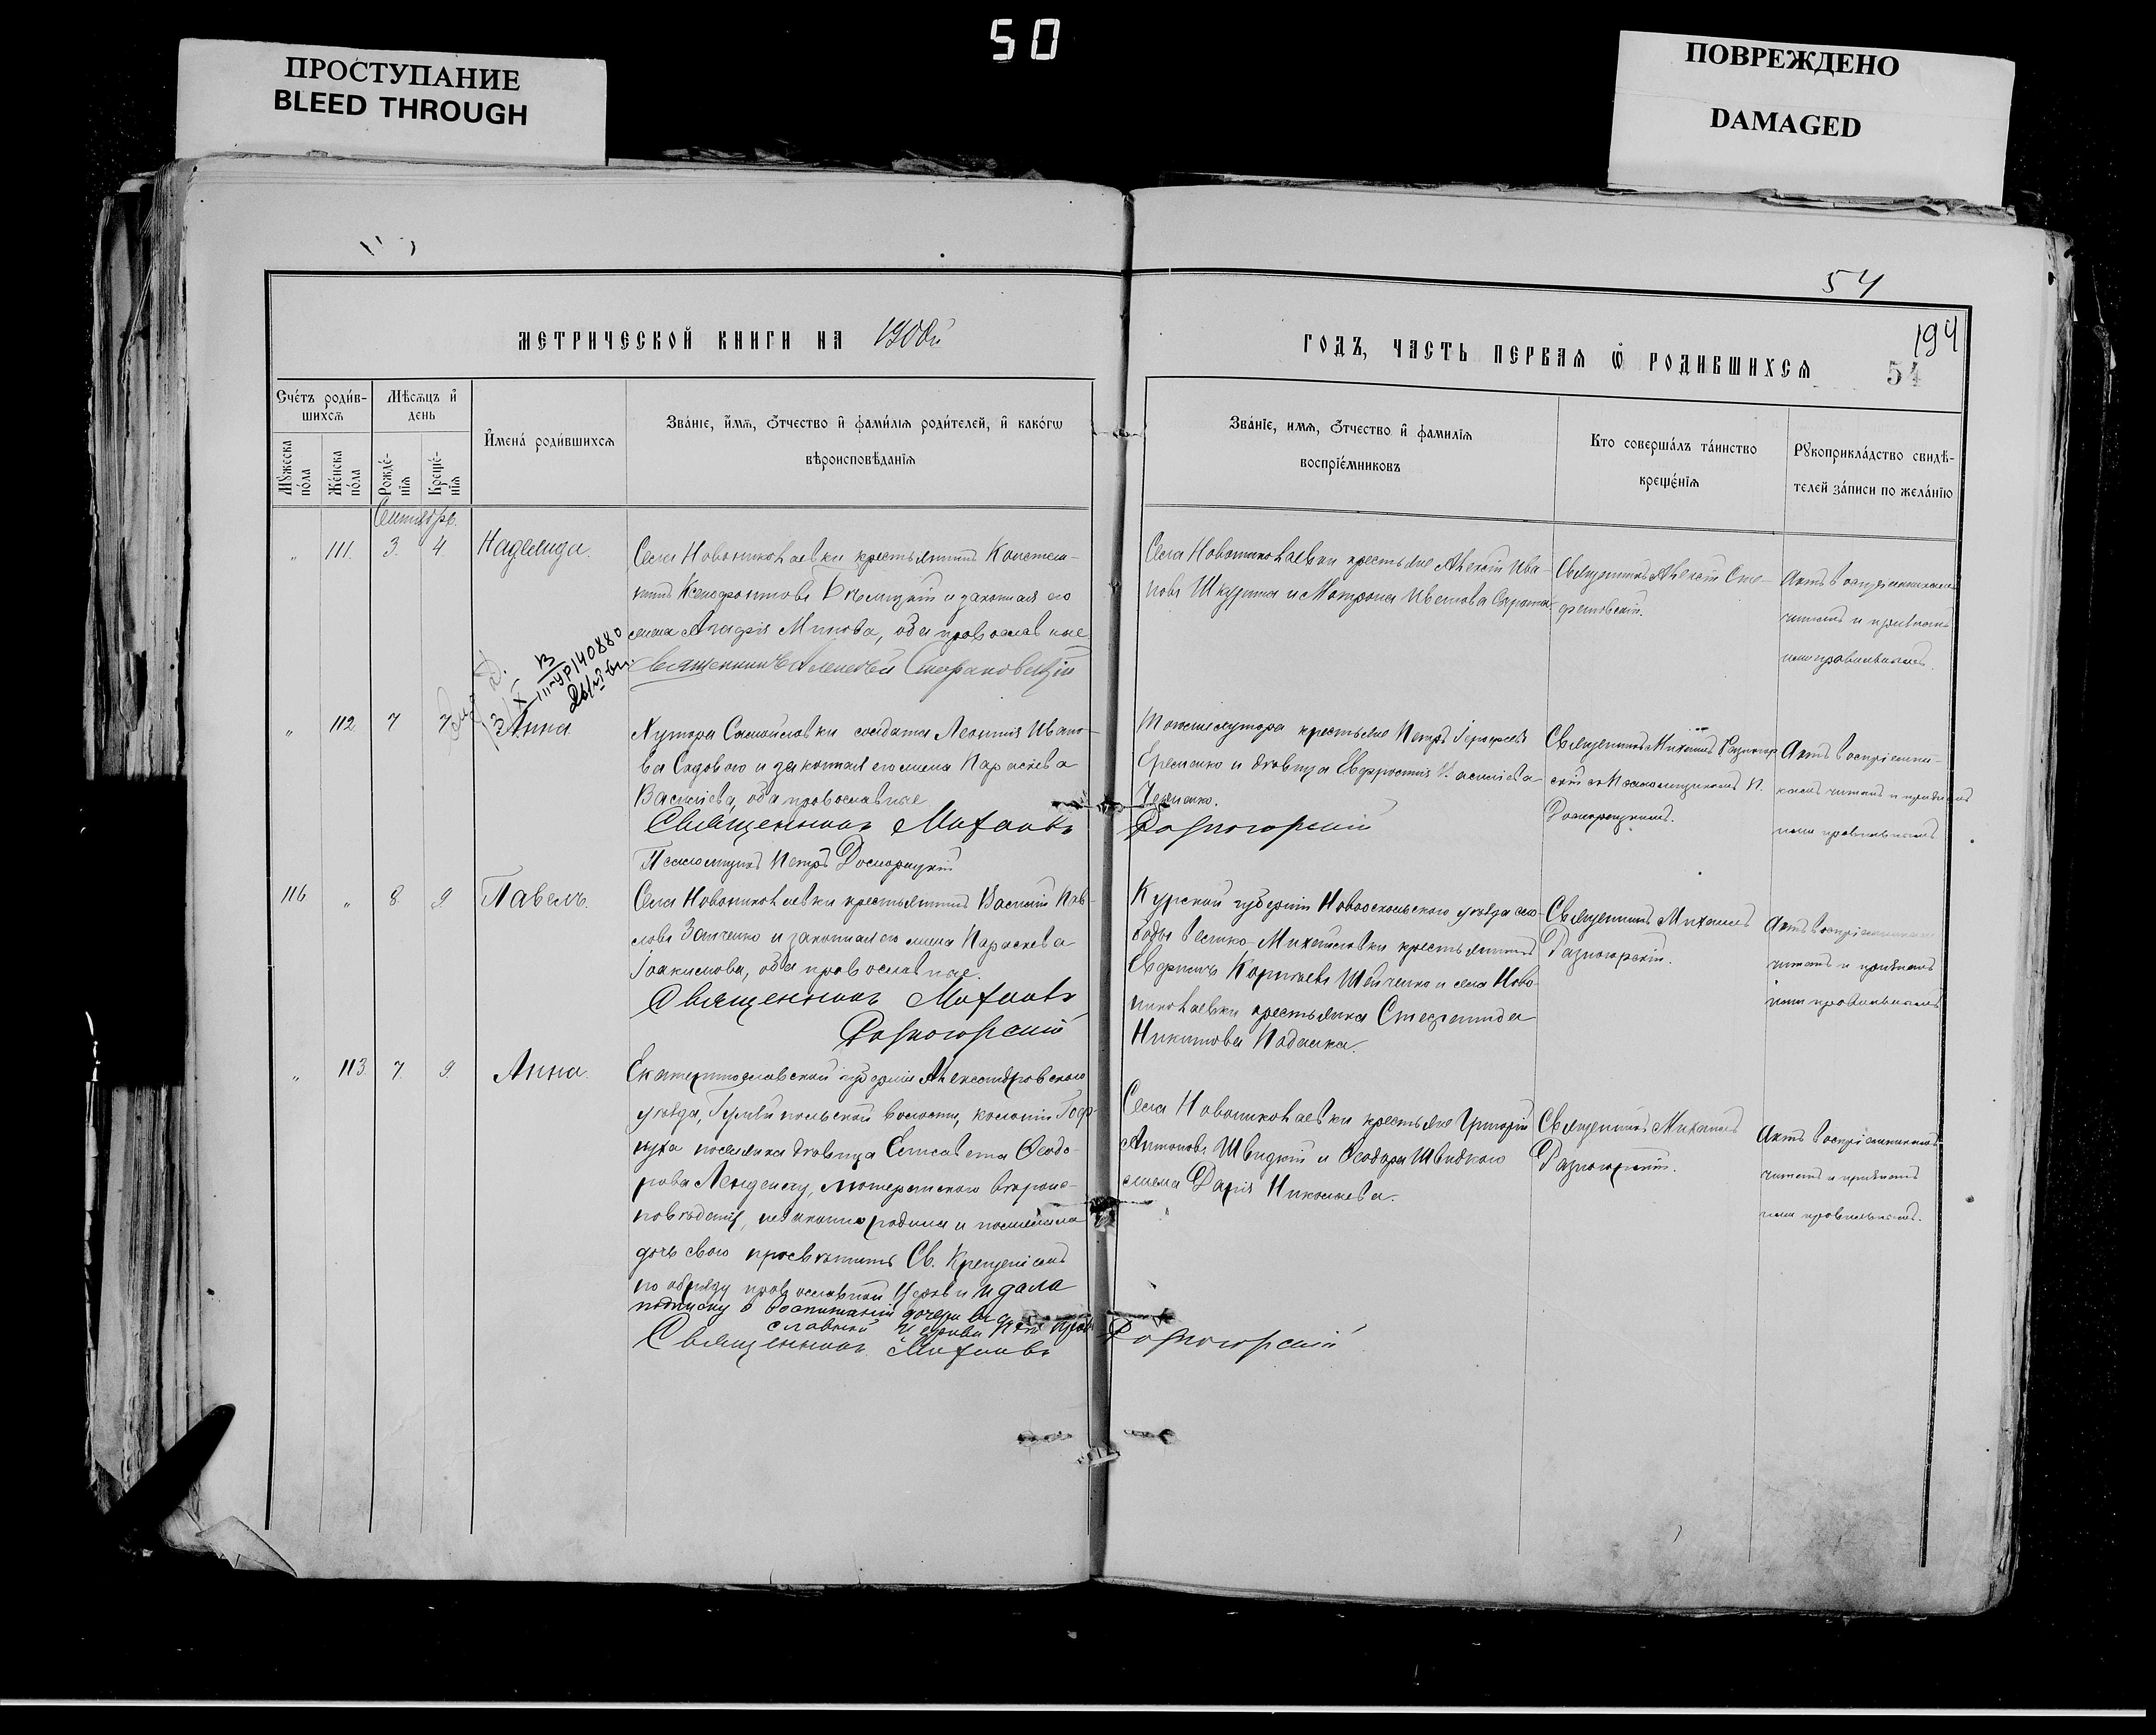 50
ПРОСТУПАНИЕ
BLEED THROUGH
ПОВРЕЖДЕНО
DAMAGED
54
194
54
МЕТРИЧЕСКОЙ КНИГИ НА 1900й
ГОДЪ, ЧАСТЬ ПЕРВАЯ Ѿ РОДИВШИХСЯ
Сче́тъ роди́в-
шихсѧ
Мѣсѧцъ и҆
день
Мꙋ́жеска по́ла
Же́нска по́ла
Рожде́-
нїѧ
Креще́-
нїѧ
И҆мена̀ роди́вшихсѧ
Зва́нїе, и҆́мѧ, ѻ҆́тчество и҆ фами́лїѧ роди́телей, и҆ како́гѡ
вѣроисповѣ́данїѧ
Зва́нїе, имѧ, ѻ҆́тчество и҆ фамилїѧ
воспрїе́мниковъ
Кто соверша́лъ та́инство
креще́нїѧ
Рꙋкоприкла́дство свидѣ́-
телей за́писи по жела́нїю
Сентябрь.
" 111. 3. 4 Надежда.
Села Новониколаевки крестьянинъ Констан-
тинъ Ксенофонтовъ и законная его
жена Агафія Минова, оба православные
Священникъ Алексей Стефановскій
Села Новониколаевки крестьяне Алексій Ива-
новъ Шкурина и Матрона Ивановa
Священникъ Алексій Сте-
фановскій.
Актъ воспріемникамъ
читанъ и признанъ
ими правильнымъ.
" 112 7 7 Анна
Хутора Самойловки солдата Леонтія Ивано-
ва Садоваго и законная его жена Параскева
Васильева, оба православные
Священникъ Михаилъ
Разногорскій
Псаломщикъ Петръ
Тогоже хутора крестьяне Петръ
Еременко и вдовица Евфросинія
Священникъ Михаилъ Разногор-
скій съ Псаломщикомъ П.
Актъ воспріемни-
камъ читанъ и признанъ
ими правильнымъ
116 " 8 9 Павелъ.
Села Новониколаевки крестьянинъ Василій Пав-
ловъ Заиченко и законная его жена Параскева
Іоакимова, оба православные.
Священникъ Михаилъ
Разногорскій
Курской губерніи Новооскольскаго уѣзда сло-
боды Велико-Михайловки крестьянинъ
Ефимъ Корнѣевъ Шевченко и села Ново-
николаевки крестьянка Стефанида
Никитова
Священникъ Михаилъ
Разногорскій.
Актъ воспріемникамъ
читанъ и признанъ
ими правильнымъ
" 113. 7. 9. Анна.
Екатеринославской губерніи Александровскаго
уѣзда, Гуляйпольской волости, колоніи
поселянка вдовица Елисавета Ѳеодо-
рова лютеранского вѣроис-
повѣданія, незаконно родила и пожелала
дочь свою просвѣтить Св. Крещеніемъ
по обряду православной Церкви и дала
подписку о воспитаніи дочери въ духѣ
славной Церкви
Священникъ Михаилъ
Разногорскій
Села Новониколаевки крестьяне Григорій
Антоновъ Швидкій и Ѳеодора Швидкого
жена Дарія Николаева.
Священникъ Михаилъ
Разногорскій.
Актъ воспріемникамъ
читанъ и признанъ
ими правильнымъ.